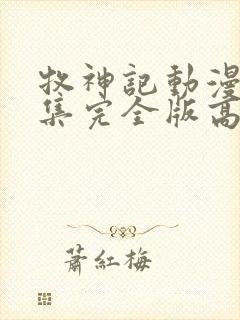 牧神記動漫
集完全版高
蕭紅梅